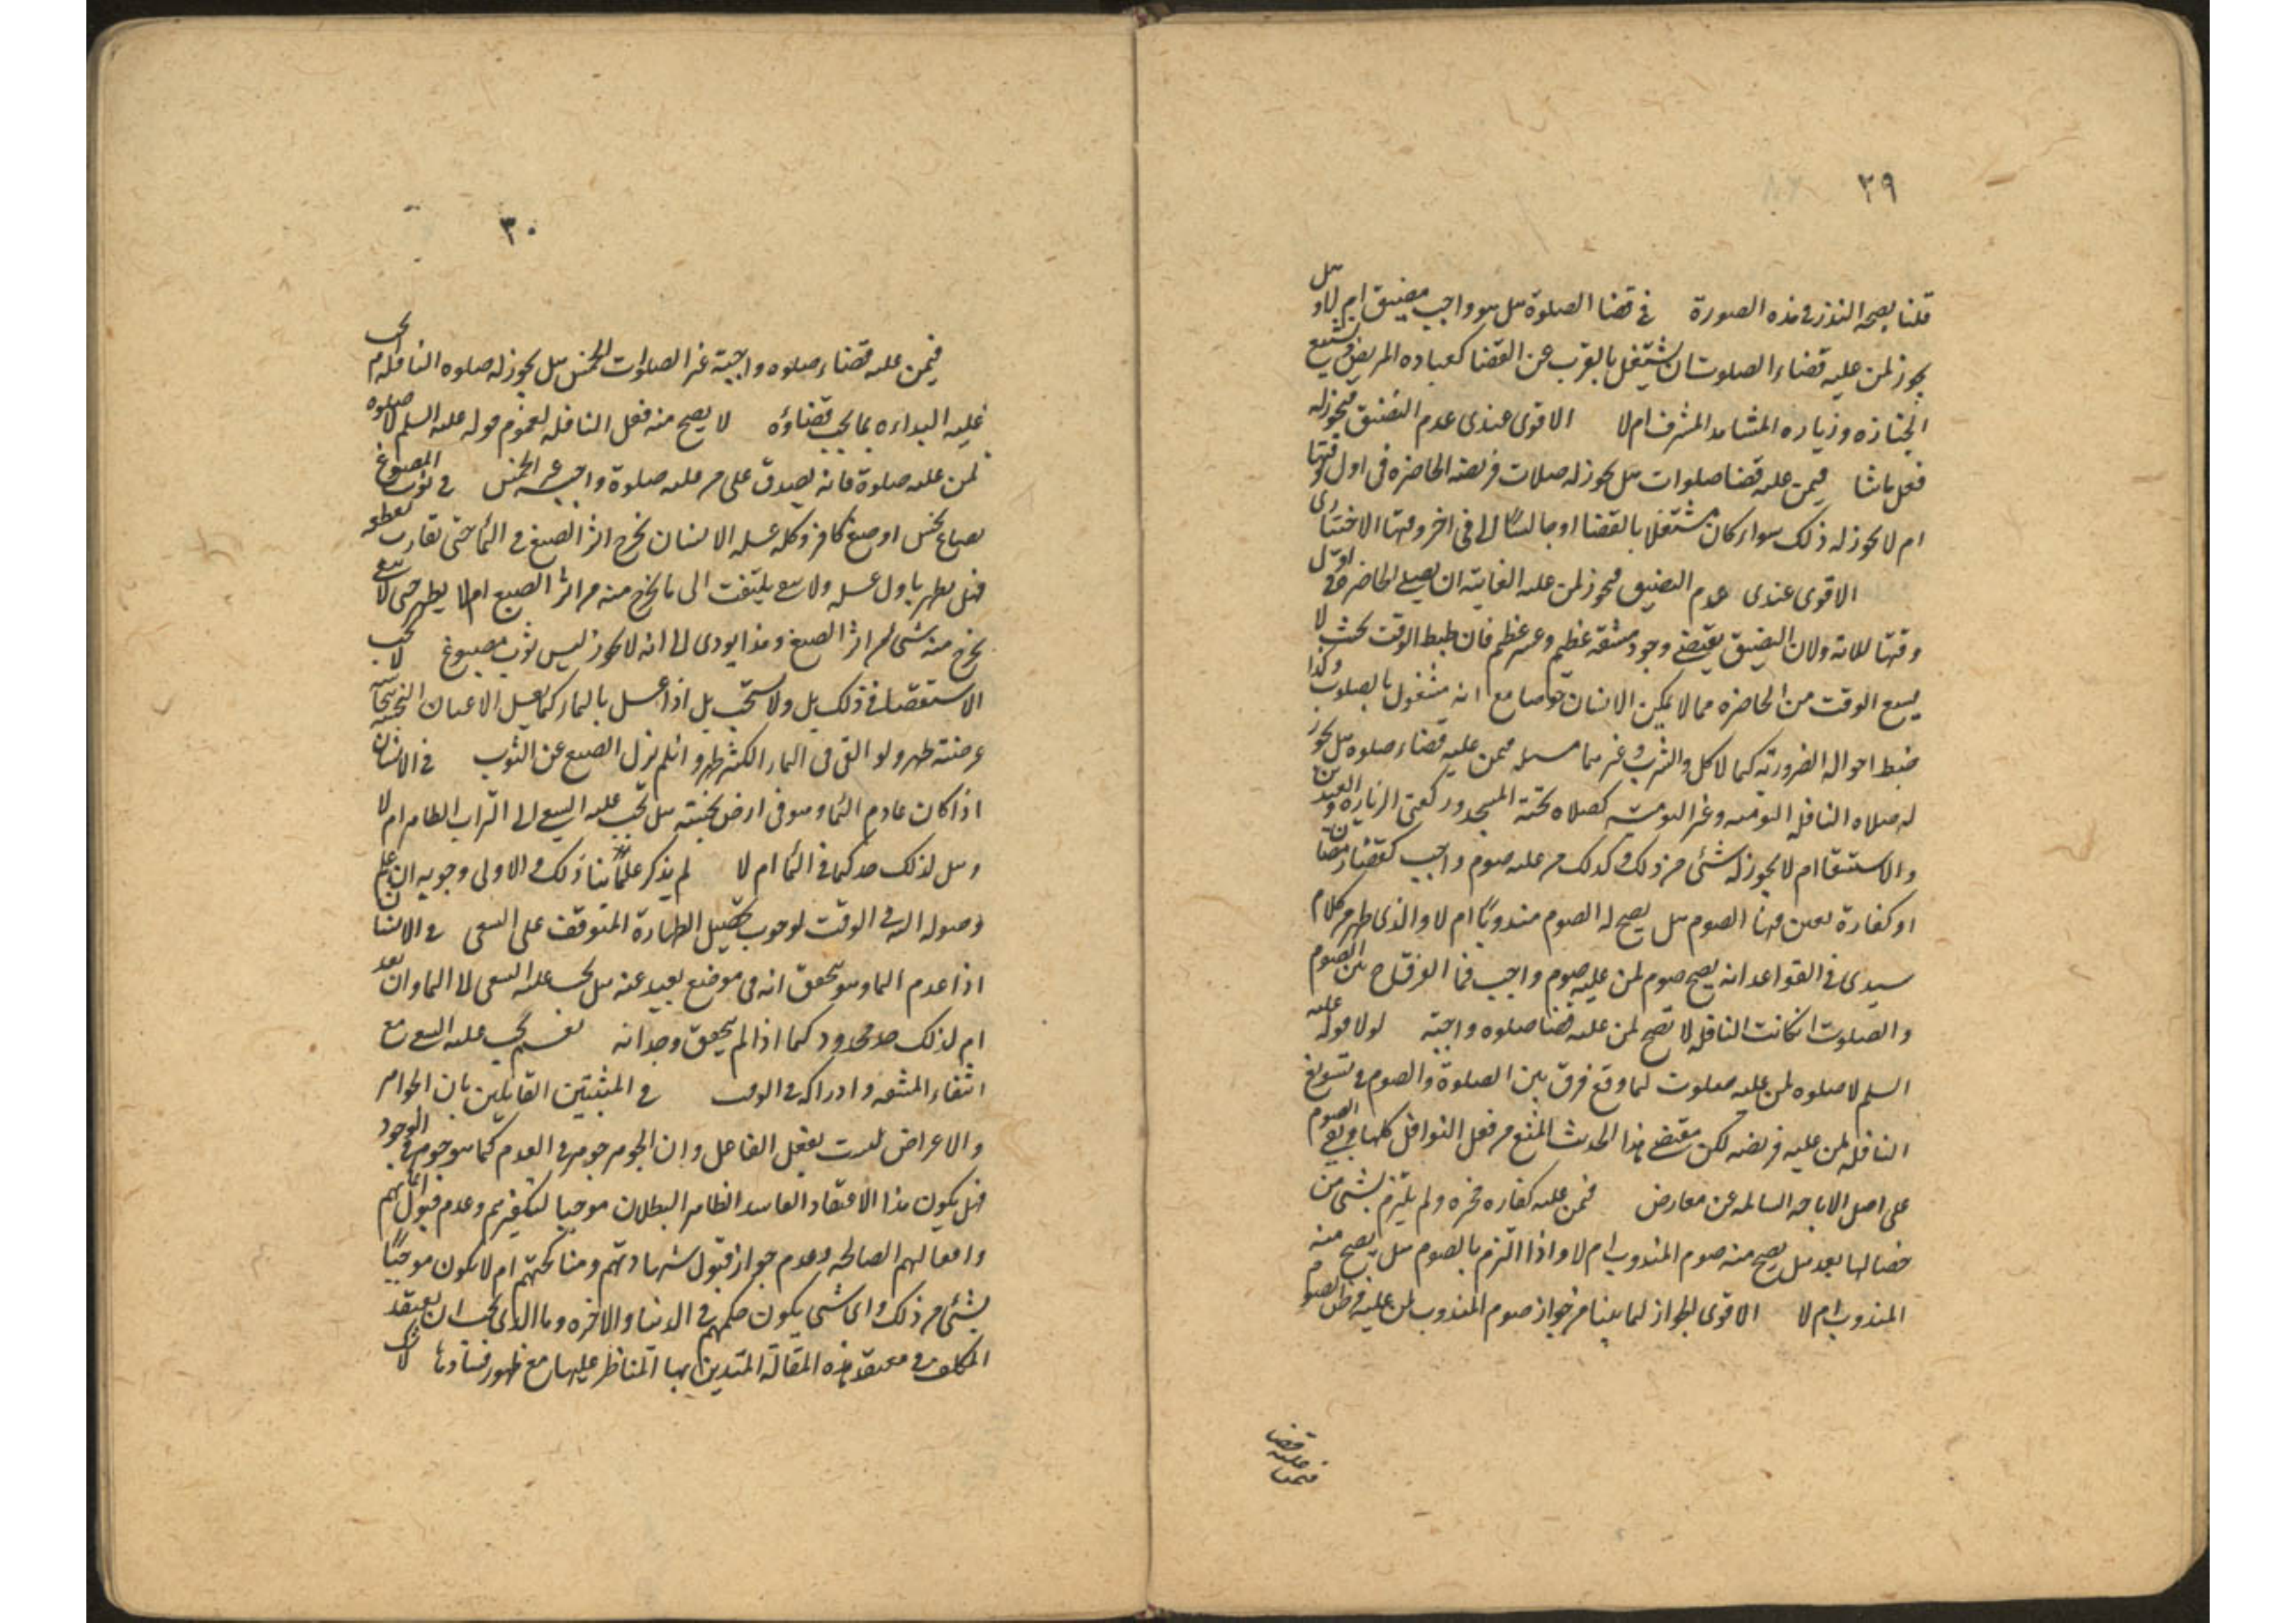 ٢٩
قلنا بصحه النذر في هذه الصورة في قضا الصلوة هل هو واجب مضيق ام لا وهل
يجوز لمن عليه قضاء الصلوت ان يشتغل بالقرب عن القضا كعياده المريض وتشييع
الجنازه وزياره المشاهد المشرفه ام لا الاقوى عندى عدم التضيق فيجوز له
فعل ماشا فيمن عليه قضا صلوات هل يجوز له صلات فريضه الحاضره في اول وقتها
ام لا يجوز له ذلك سواء كان مشتغلا بالقضا او جالسًا الى في اخر وقتها الاختيارى
الاقوى عندى عدم التضيق فيجوز لمن عليه الفايته ان يصلى الحاضره في اول
وقتها للاية ولان التضيق يقتضي وجود مشقه عظيم وعسر عظيم فان ضبط الوقت بحيث لا
يسع الوقت من الحاضره مما لا يمكن الانسان خصوصا مع انه مشغول بالصلوت وكذا
ضبط احواله الضروريه كالاكل والشرب وغيرهما مسله فيمن عليه قضاء صلوه هل يجوز
له صلاه النافله اليوميه وغير اليوميه كصلاه تحية المسجد وركعتى الزياره والعيدين
والاستسقا ام لا يجوز له شئ من ذلك وكذلك من عليه صوم واجب كقضاء رمضان
او كفارة تعين فيها الصوم هل يصح له الصوم مندوبًا ام لا والذى ظهر من كلام
سيدى في القواعد انه يصح صوم لمن عليه صوم واجب فما الفرق ح بين الصوم
والصلوت ان كانت النافله لا تصح لمن عليه قضا صلوه واجبة لولا قوله عليه
السلم لا صلوه لمن عليه صلوت لما وقع فرق بين الصلوة والصوم في تسويغ
النافله لمن عليه فريضه لكن مقتضي هذا الحديث المنع من فعل النوافل كلها وبقي الصوم
على اصل الاباحه السالمه عن معارض فيمن عليه كفاره مخيره ولم يلتزم بشئ من
خصالها بعد هل يصح منه صوم المندوب ام لا واذا التزم بالصوم هل يصح منه
المندوب ام لا الاقوى الجواز لما بينا من جواز صوم المندوب لمن عليه فرض الصوم
فيمن عليه قضا
٣٠
فيمن عليه قضاء صلوه واجبة غير الصلوات الخمس هل يجوز له صلوه النافله ام يجب
عليه البداءه بما يجب قضاؤه لا يصح منه فعل النافله لعموم قوله عليه السلم لا صلوه
لمن عليه صلوة فانه يصدق على من عليه صلوة واجبه غير الخمس في ثوب المصبوغ
بصباغ نجس او صبغ كافر وكلما غسله الانسان يخرج اثر الصبغ في الماء حتى تقارب تقطعه
فهل يطهر باول غسله ولا يلتفت الى ما يخرج منه من اثر الصبغ ام لا يطهر حتى لا يبقى
يخرج منه شئ من اثر الصبغ وهذا يودى الى انه لا يجوز لبس ثوب مصبوغ لا يجب
الاستقصاء في ذلك بل ولا يستحب بل اذا غسل بالماء كما يغسل الاعيان النجسه نجاسه
عرضته طهر ولو القى في الماء الكثير طهر وان لم يزل الصبغ عن الثوب في الانسان
اذا كان عادم الماء وهو في ارض نجسة هل يجب عليه السعى الى التراب الطاهر ام لا
وهل لذلك حد كما في الماء ام لا لم يذكر علماؤنا ذلك والاولى وجوبه ان علم
وصوله اليه في الوقت لوجوب تحصيل الطهارة المتوقف على السعى في الانسان
اذا عدم الماء وهو يتحقق انه في موضع بعيد عنه هل يجب عليه السعى الى الماء وان بعد
ام لذلك حد محدود كما اذا لم يتحقق وجدانه نعم يجب عليه السعى مع
انتفاء المشقه وادراكه في الوقت في المثبتين القايلين بان الجواهر
والاعراض ليست بفعل الفاعل وان الجوهر جوهر في العدم كما هو جوهر في الوجود
فهل يكون هذا الاعتقاد الفاسد الظاهر البطلان موجبا لتكفيرهم وعدم قبول ايمانهم
وافعالهم الصالحه وعدم جواز قبول شهادتهم ومناكحتهم ام لا يكون موجبًا
بشئ من ذلك واى شئ يكون حكمهم في الدنيا والاخره وما الذى يجب ان يعتقد
المكلف في معتقد هذه المقالة المتدين بها المناظر عليها مع ظهور فسادها لا شك